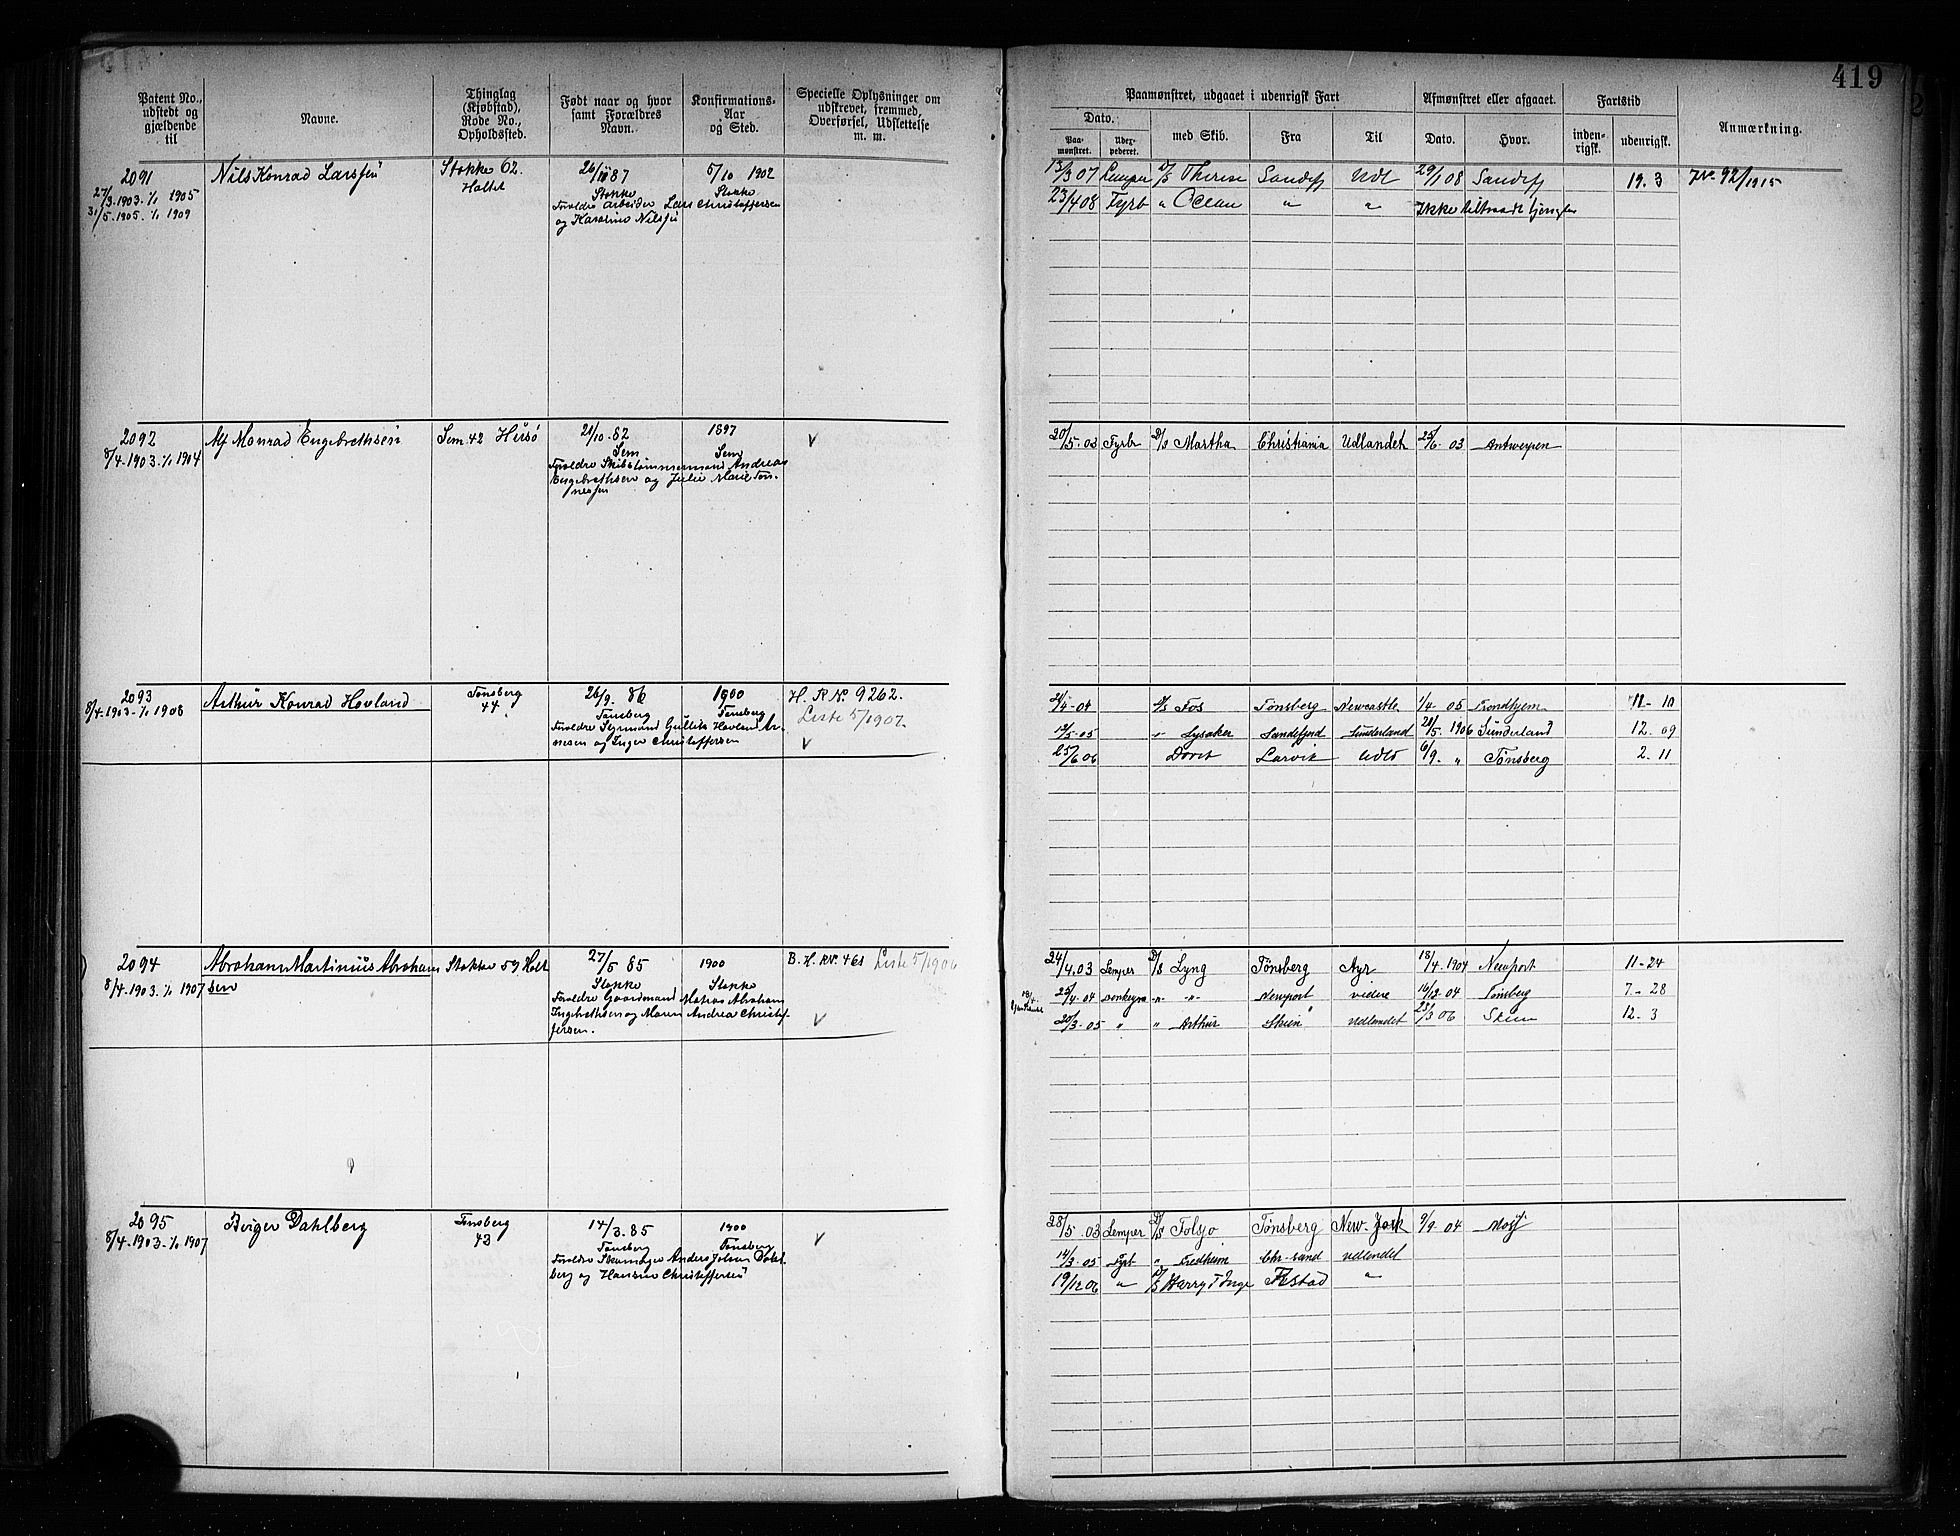 419
Patent No., udstedt og gjældende til
Navne.
Thinglag (Kjøbstad), Rode No., Opholdssted.
Født naar og hvor samt Forældres Navn.
Konfirmations-Aar og Sted.
Specielle Oplysninger om udskrevet, fremmed, Overførsel, Udslettelse m. m.
Paamønstret, udgaaet i udenrigsk Fart
Afmønstret eller afgaaet.
Fartstid
Anmærkning.
Dato.
Paamønstret.
med Skib.
Fra
Til
Dato.
Hvor.
indenrigsk.
udenrigsk.
2091
27/3.1903.1/1 1905
31/5.1905.1/1 1909
Nils Konrad Larssen
Stokke 62.
Holtet
Stokke
5/10 1902
Stokke
Foreldre Arbeider Lars Christoffersen
og Karoline Nilssen
13/3 07 Lemper D/S Therese Sandefj Udl 29/1 08 Sandefj 19.3 92/1915
23/4 08 Fyrb " Ocean " " Ikke tiltraadt tjenesten
2092
8/4.1903.1/1 1904
Alf Monrad Engebrethsen
Sem 42 Husø
21/10.82
Sem
1897
Sem
Foreldre Skibstømmermand Andreas
Engebrethsen og Julie Marie Tønnessen
20/5.03 Fyrbr D/S Martha Christiania Udlandet 25/6.03 Antwerpen
2093
8/4.1903-1/1 1908
Arthur Konrad Hovland
Tønsberg
44
26/9.86
Tønsberg
1900
Tønsberg
Foreldre Sigmund Gullik Hovland Arnesen og Inger Christoffersen
H. R No. 9262.
Liste 5/1907.
04 Fos Tønsberg Newcastle 1/4 05 Trondhjem 11-10
05 " Lysaker Sandefjord Sunderland 20/5 1906 Sunderland 12.09
25/6 06 Dovre Larvik Udld 6/9. " Tønsberg 2.11
2094
8/4.1903.1/1 1907
Abraham Martinius Abrahamsen
Stokke 59 Holt
27/5 85
Stokke
1900
Stokke
Foreldre Gaardmand Matros Abraham
Ingebrethsen og Maren Andrea Christoffersen.
B. H. RNo. 461
Liste 5/1906
24/4.03 Lemper D/S Lyng Tønsberg Ayr 18/4.1904 Newport 11-24
25/4.04 Donkeym " " Newport videre 16/12.04 Tønsberg 7.-28
20/3.05 " " Arthur Skien Udlandet 06 Skien 12.3
2095
8/4.1903.1/1 1907
Birger Dahlberg
Tønsberg
43
14/3.85
Tønsberg
1900
Tønsberg
Foreldre Skomager Anders Johan Dahlberg og Hansine Christoffersen
28/5.03 Lemper D/S Folsjo Tønsberg New-York 9/9.04
14/3.05 Fyrb " Fredheim Chr.sand Udlandet
19/12 06 " D/S Harry T Inge F.stad "